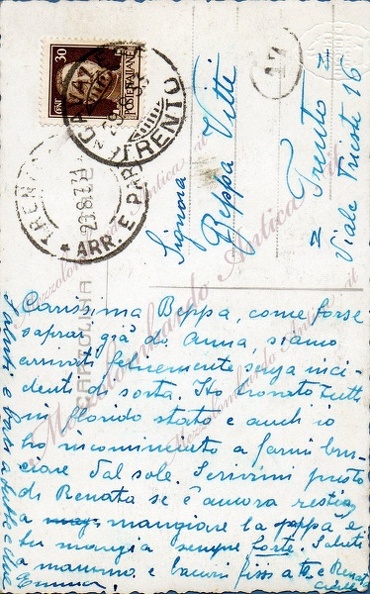 30
POSTE ITALIANE
TRENTO
TRENTO
* ARR. E PAR
Signora
Beppa Vitti
= Trento =
Viale Trieste 16
CARTOLINA
Mezzolombardo Antica.it
Carissima Beppa, come forse
saprai già di Anna, siamo
arrivati felicemente senza inci-
denti di sorta. Ho trovato tutti
in florido stato e anch'io
ho incominciato a farmi bru-
ciare dal sole. Scrivimi presto
di Renata se è ancora restia
a mangiare la pappa e
tu mangia sempre forte. Saluti
a mamma e bacioni fissi a te e Renata
Saluti e baci a tutte e due
Emma!